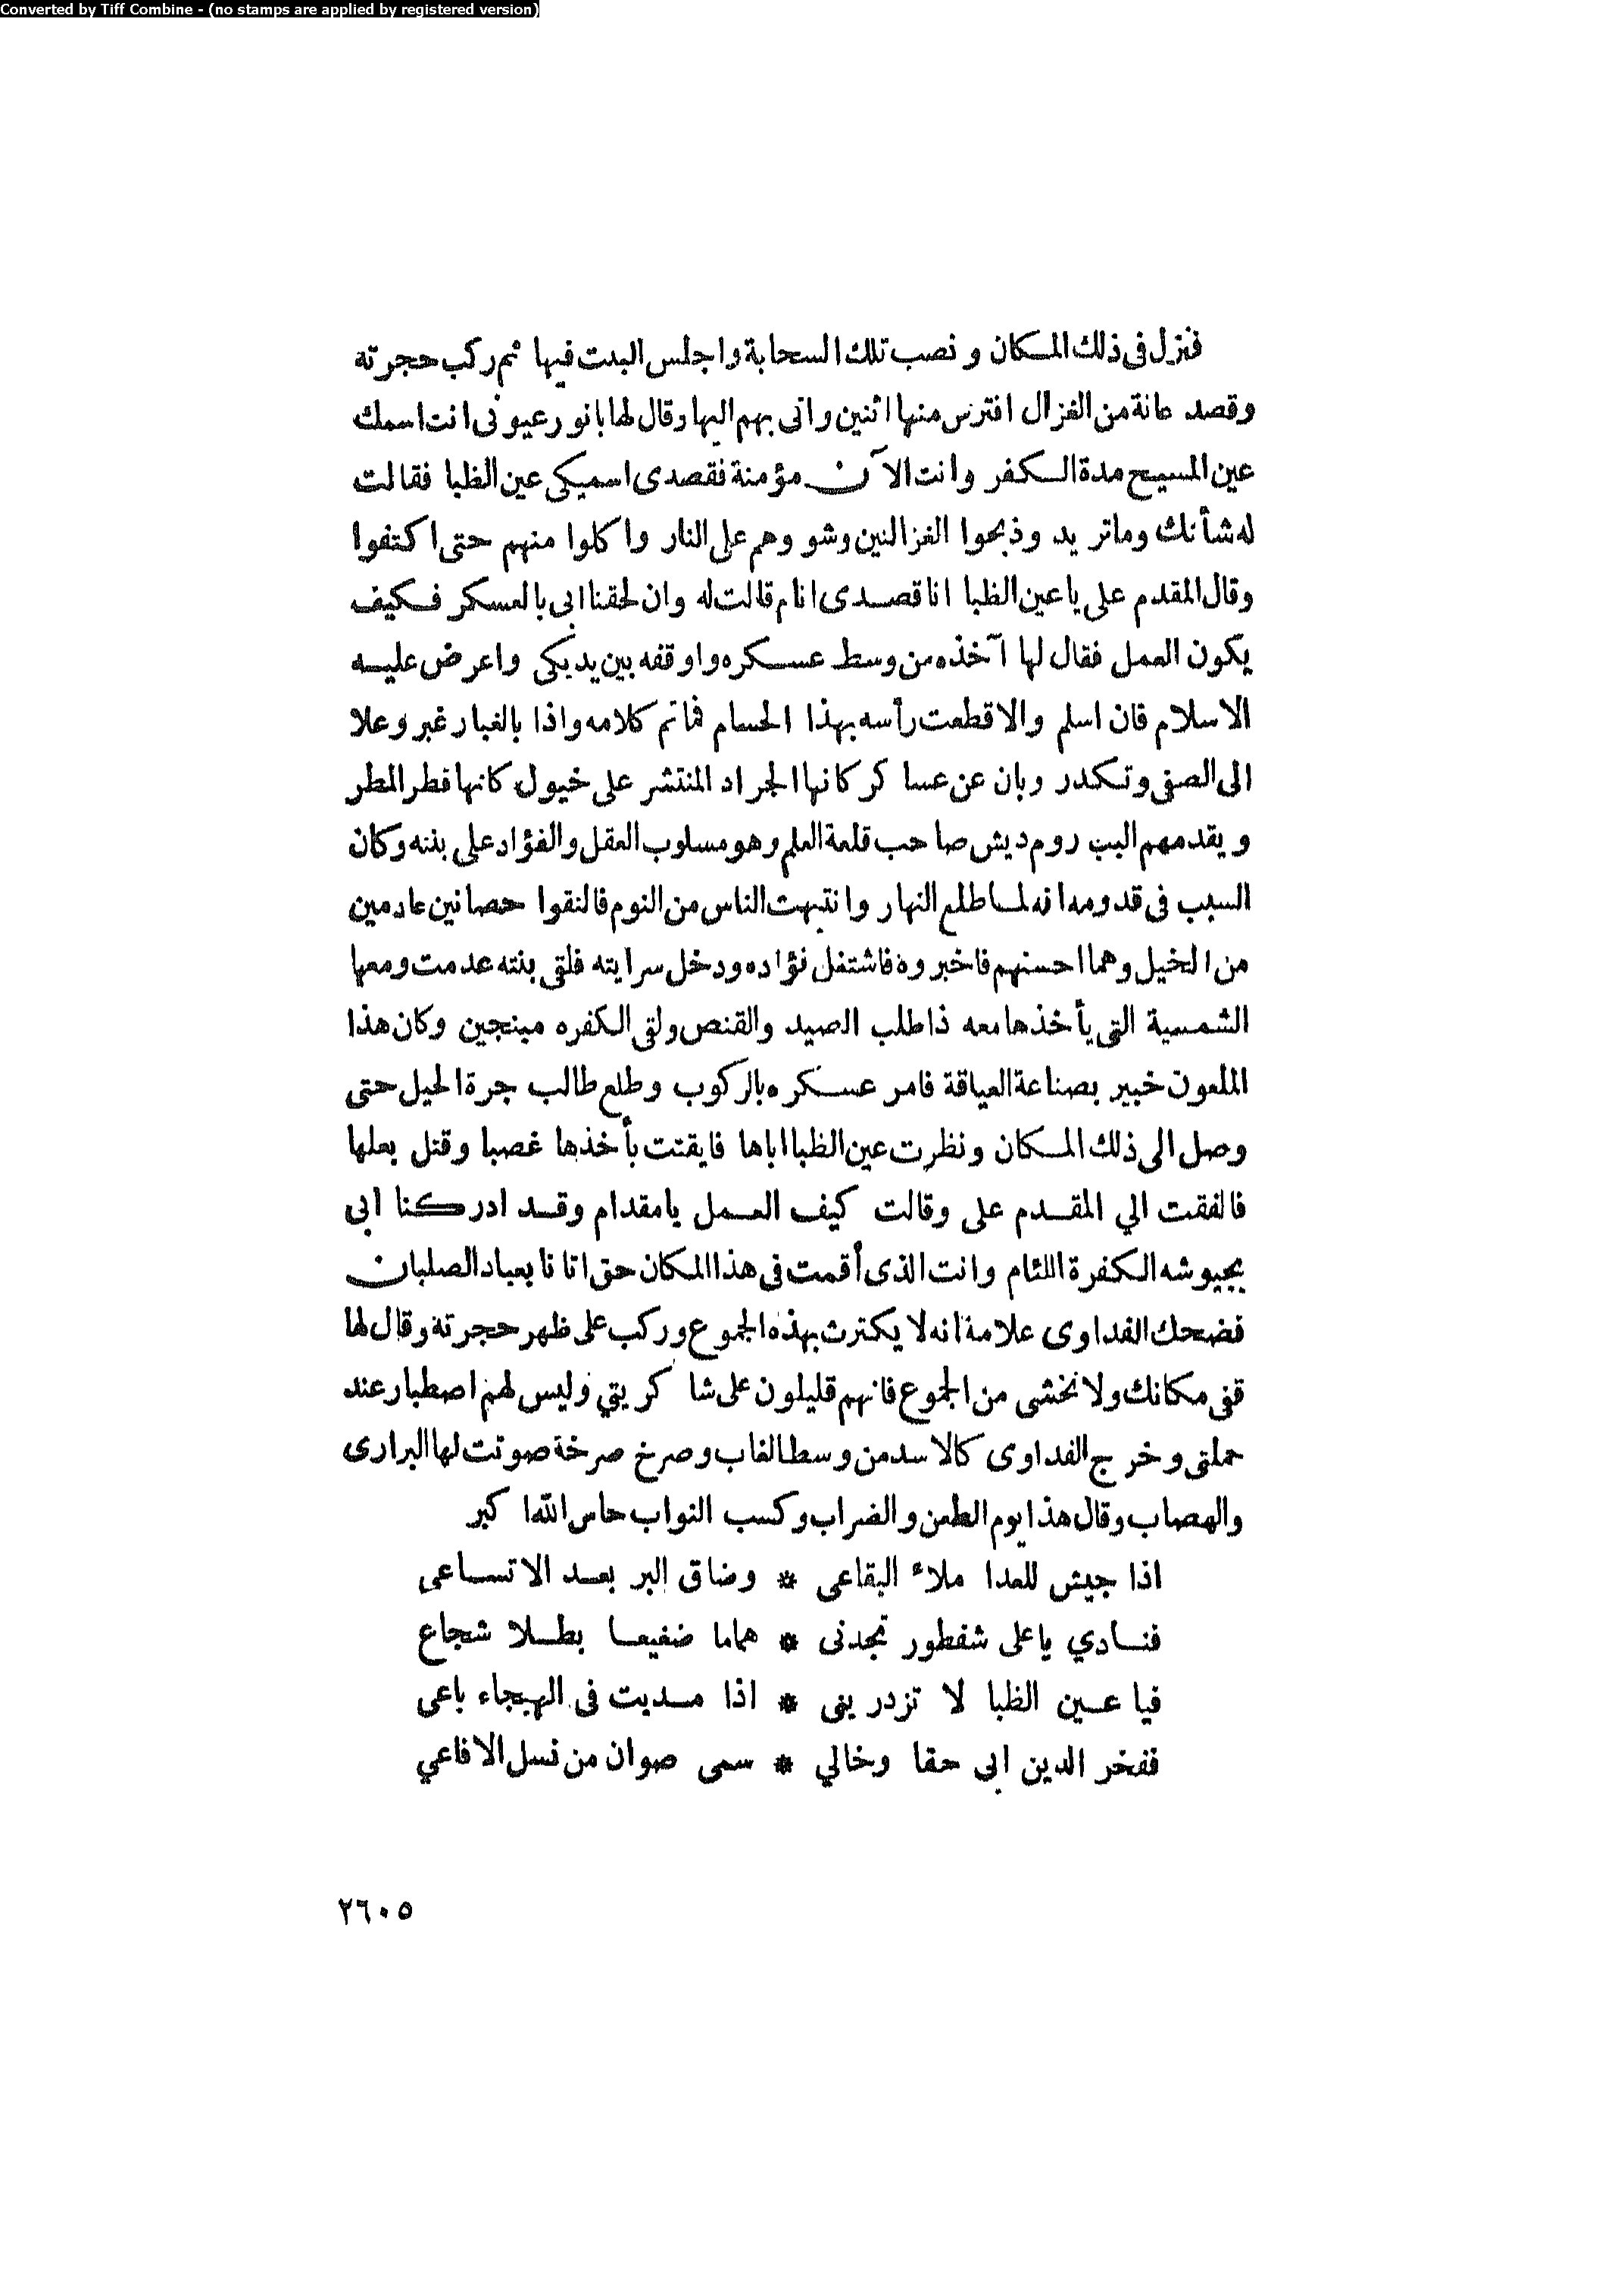 Converted by Tiff Combine - (no stamps are applied by registered version)
فنزل فى ذلك المكان و نصب تلك السحابة واجلس البنت فيها ثم ركب حجرته
وقصد عانة من الغزال افترس منها اثنين واتى بهم اليها وقال لها يانور عيونى انت اسمك
عين المسيح مدة الكفر وانت الآن مؤمنة فقصدى اسميكى عين الظبا فقالت
له شأنك وماتريد وذبحوا الغزالتين وشووهم على النار واكلوا منهم حتى اكتفوا
وقال المقدم على ياعين الظبا انا قصدى انام قالت له وان لحقنا ابى بالعسكر فكيف
يكون العمل فقال لها آخذه من وسط عسكره واوقفه بين يديكى واعرض عليه
الاسلام فان اسلم والا قطعت رأسه بهذا الحسام فماتم كلامه واذا بالغبار غبر وعلا
الى الصفى وتكدر وبان عن عساكر كانها الجراد المنتشر على خيول كانها قطر المطر
ويقدمهم البب روم ديش صاحب قلعة العلم وهو مسلوب العقل والفؤاد على بنته وكان
السبب فى قدومه انه لما طلع النهار وانتبهت الناس من النوم فالتقوا حصانين عادمين
من الخيل وهما احسنهم فاخبروه فاشتغل فؤاده ودخل سرايته فلقى بنته عدمت ومعها
الشمسية التى يأخذها معه ذا طلب الصيد والقنص ولقى الكفره مبنجين وكان هذا
الملعون خبير بصناعة العياقة فامر عسكره بالركوب وطلع طالب جرة الخيل حتى
وصل الى ذلك المكان ونظرت عين الظبا اباها فايقنت بأخذها غصبا وقتل بعلها
فالفقت الي المقدم على وقالت كيف العمل يامقدام وقد ادركنا ابى
بجيوشه الكفرة اللئام وانت الذى أقمت فى هذا المكان حتى اتانا بعباد الصلبان
فضحك الفداوى علامة انه لا يكترث بهذه الجموع وركب على ظهر حجرته وقال لها
قفى مكانك ولا تخشى من الجموع فانهم قليلون على شاكريتي وليس لهم اصطبار عند
حملتى وخرج الفداوى كالاسد من وسط الغاب وصرخ صرخة صوتت لها البرارى
والهضاب وقال هذا يوم الطعن والضراب وكسب الثواب حاس الله اكبر
اذا جيش للعدا ملاء البقاعى * وضاق البر بعد الاتساعى
فنادي ياعلى شفطور تجدنى * هماما ضفيعا بطلا شجاع
فيا عين الظبا لا تزدرينى * اذا مديت فى الهيجاء باعى
ففخر الدين ابى حقا وخالي * سمى صوان من نسل الافاعي
٢٦٠٥